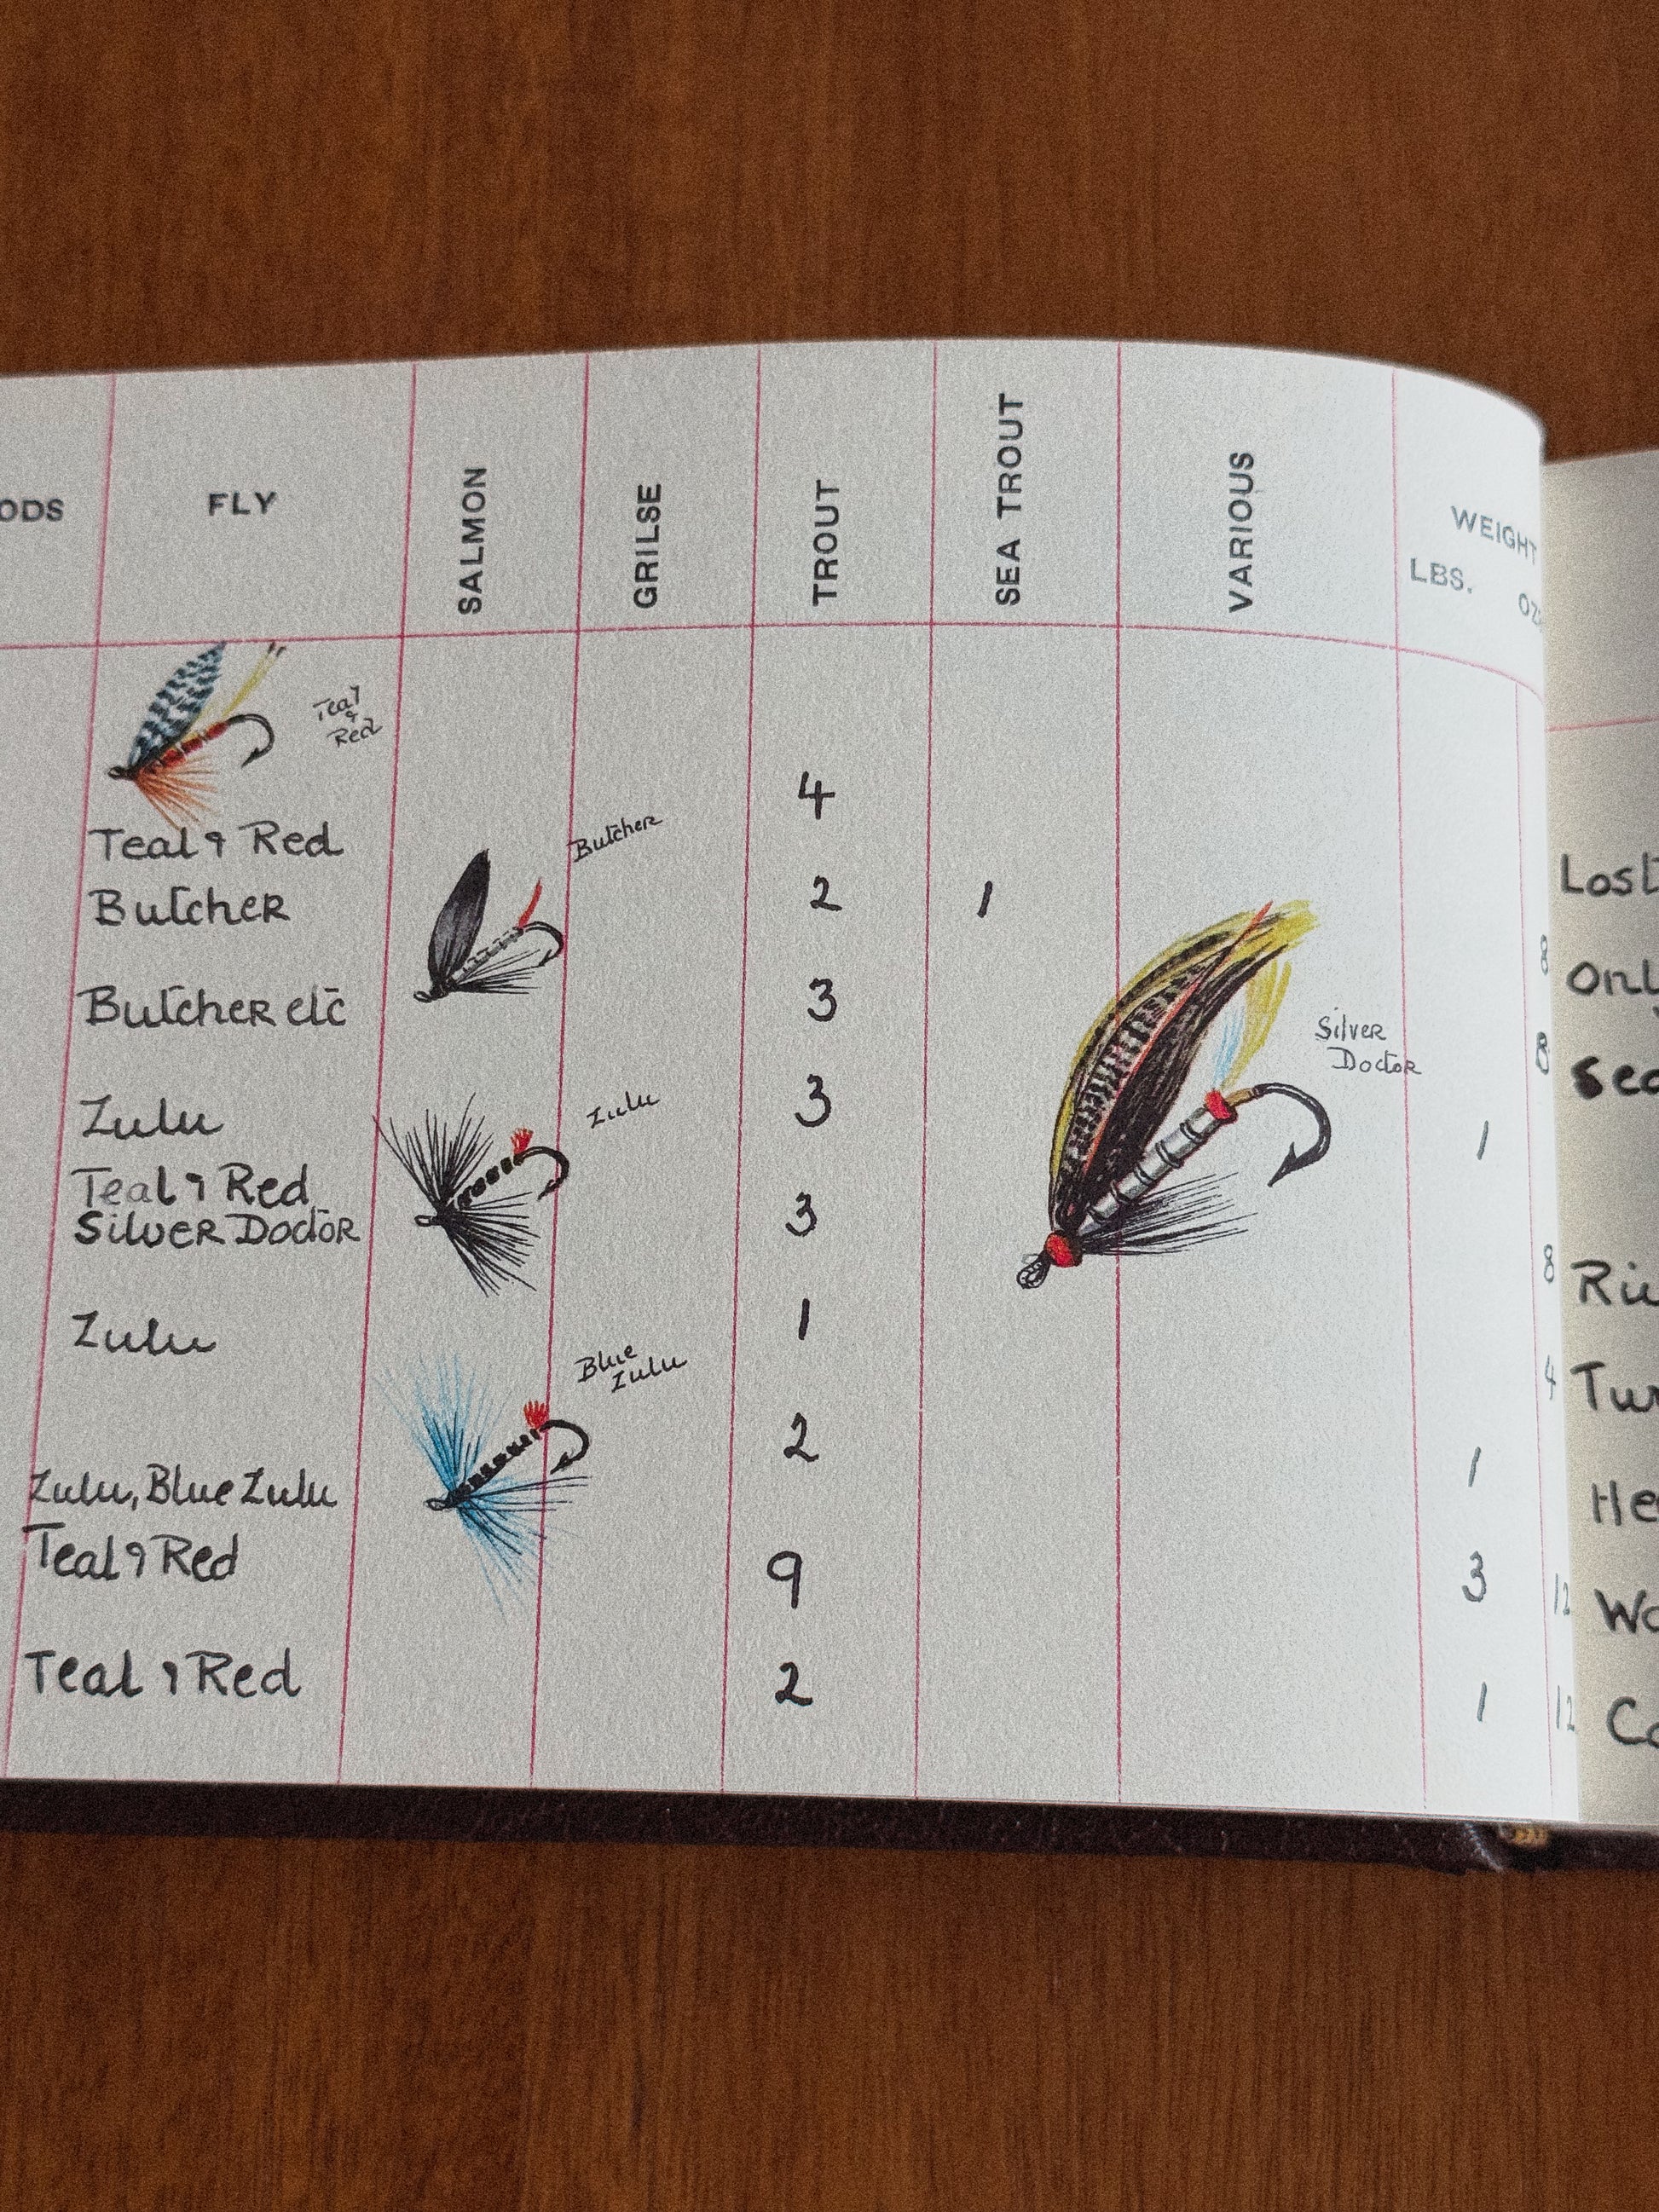 FLY
SALMON
GRILSE
TROUT
SEA TROUT
VARIOUS
WEIGHT
LBS.
Teal
&
Red
4
Teal & Red
Butcher
Butcher
2
1
Butcher etc
3
8
Silver
Doctor
Zulu
Zulu
3
8
Teal & Red
Silver Doctor
3
1
Zulu
1
8
Blue
Zulu
2
4
Zulu, Blue Zulu
1
Teal & Red
9
3
12
Teal & Red
2
1
12